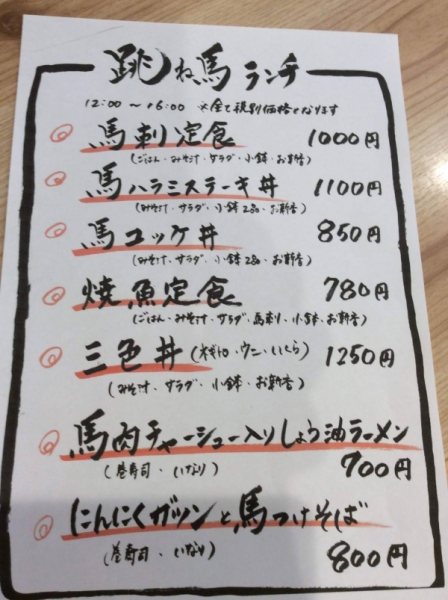 跳ね馬ランチ
12:00～16:00 ※全て税別価格となります
馬刺定食 1000円
(ごはん・みそ汁・サラダ・小鉢・お新香)
馬ハラミステーキ丼 1100円
(みそ汁・サラダ・小鉢2品・お新香)
馬ユッケ丼 850円
(みそ汁・サラダ・小鉢2品・お新香)
焼魚定食 780円
(ごはん・みそ汁・サラダ・馬刺・小鉢・お新香)
三色丼(ネギトロ・ウニ・いくら) 1250円
(みそ汁・サラダ・小鉢・お新香)
馬肉チャーシュー入りしょう油ラーメン
(巻寿司・いなり) 700円
にんにくガツンと馬つけそば
(巻寿司・いなり) 800円